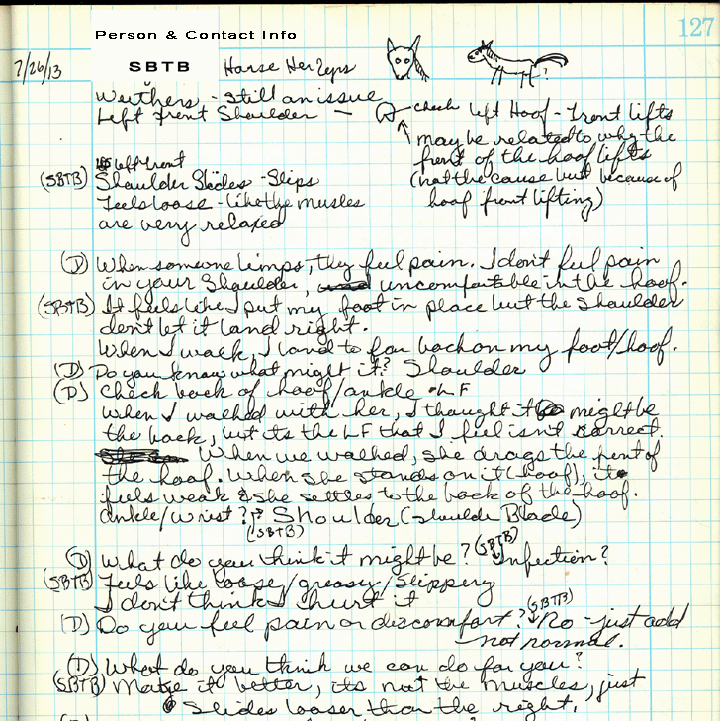 127
Person & Contact Info
7/26/13 SBTB Horse Herzeps
Weithers - still an issue
Left front Shoulder — check left Hoof - Front lifts
may be related to why the
front of the hoof lifts
(not the cause but because of
hoof front lifting)
left front
(SBTB) Shoulder Slides - Slips
Feels loose - like the musles
are very relaxed
(D) When someone limps, they feel pain. I don't feel pain
in your Shoulder, uncomfortable in the hoof.
(SBTB) It feels like I put my foot in place but the shoulder
don't let it land right.
When I walk, I land to far back on my foot/hoof.
(D) Do you know what might it? Shoulder
(D) Check back of hoof/ankle - LF
When I walked with her, I thought it might be
the back, but its the LF that I feel isn't correct.
When we walked, she drags the front of
the hoof. When she stands on it (hoof), it
feels weak & she settles to the back of the hoof.
ankle/wrist? Shoulder (shoulde Blade)
(SBTB)
(D) What do you think it might be? (SBTB) Infection?
(SBTB) Feels like loose/greasy/slippery
I don't think I hurt it
(D) Do you feel pain or discomfort? (SBTB) No - just odd
not normal.
(D) What do you think we can do for you?
(SBTB) Make it better, its not the muscles, just
Slides looser than the right.